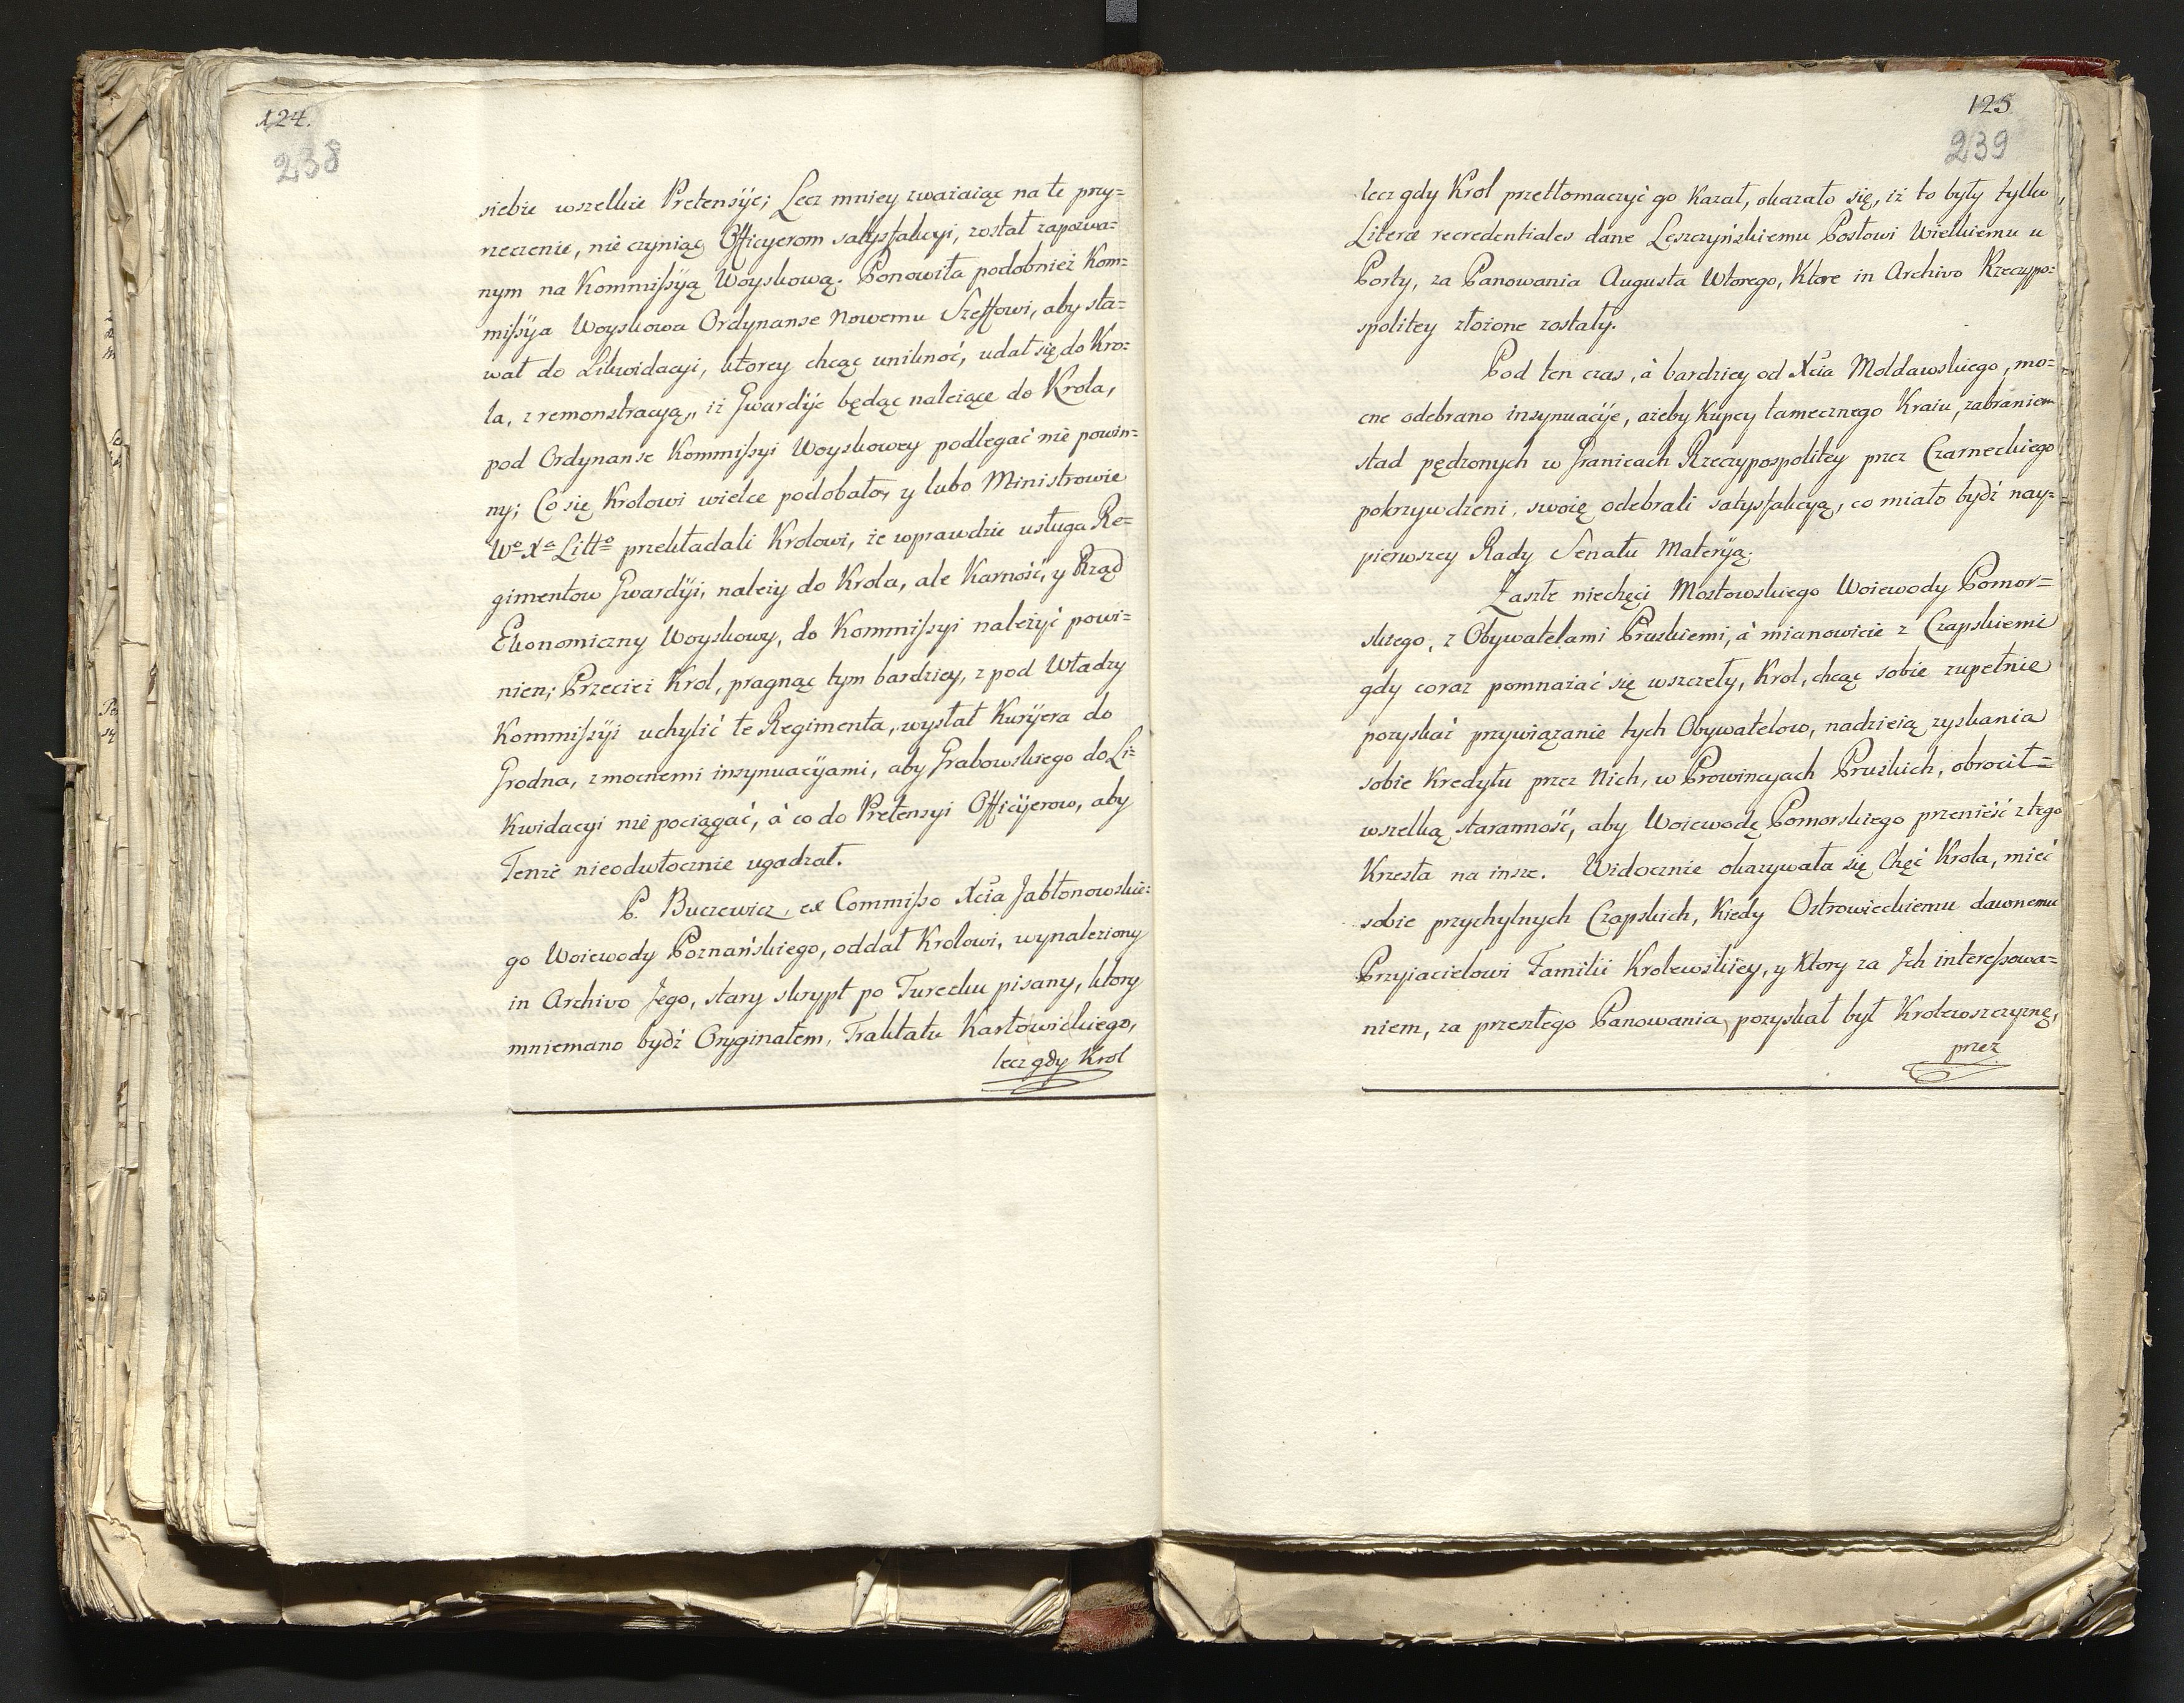 124.
238
siebie wszelkie Pretensÿe; Lecz mniey zważaiąc na te przy=
rzeczenie, nie czyniąc Officyerom satysfakcyi, został zapozwa=
nym na Kommissÿą Woyskową. Ponowiła podobnież Kom=
missÿa Woyskowa Ordynanse Nowemu Szeffowi, aby sta=
wał do Likwidacyi, ktorey chcąc uniknąć, udał się do Kro=
la, z remonstracyą, iż Gwardÿe będąc należące do Krola,
pod Ordynanse Kommissyi Woyskowey podlegać nie powin=
ny; Co się Krolowi wielce podobało, y lubo Ministrowie
Wo Xa Litto przekładali Krolowi, że wprawdzie usługa Re=
gimentow Gwardÿi, należy do Krola, ale Karność, y Rząd
Ekonomiczny Woyskowy, do Kommissyi należyć powi=
nien; Przecież Krol, pragnąc tym bardziey, z pod Władzy
Kommissÿi uchylić te Regimenta, wysłał Kurÿera do
Grodna, z mocnemi insynuacÿami, aby Grabowskiego do Li=
kwidacyi nie pociągać, à co do Pretensyi Officÿerow, aby
Tenże nieodwłocznie ugadzał.
P. Buczewicz, ex Commisso Xcia Jabłonowskie=
go Woiewody Poznańskiego, oddał Krolowi, wynaleziony
in Archivo Jego, stary skrypt po Turecku pisany, ktory
mniemano bydź Oryginałem, Traktatu Karłowickiego,
lecz gdy Krol
125
239
lecz gdy Krol przetłomaczyć go Kazał, okazało się, iż to były tylko
Literæ recredentiales dane Leszczyńskiemu Posłowi Wielkiemu u
Porty, za Panowania Augusta Wtorego, Ktore in Archivo Rzeczypo=
spolitey złożone zostały.
Pod ten czas, à bardziey od Xcia Mołdawskiego, mo=
cne odebrano insynuacÿe, ażeby Kupcy tamecznego Kraiu, zabraniem
stad pędzonych w Granicach Rzeczypospolitey przez Czarneckiego
pokrzywdzeni, swoię odebrali satysfakcyą, co miało bydź nay=
pierwszey Rady Senatu Materÿą.
Zaszłe niechęci Mostowskiego Woiewody Pomor=
skiego, z Obywatelami Pruskiemi, à mianowicie z Czapskiemi
gdy coraz pomnażać się wszczeły, Krol, chcąc sobie zupełnie
pozyskać przywiązanie tych Obywatelow, nadzieią zyskania
sobie Kredytu przez Nich, w Prowincyach Pruskich, obrocił=
wszelką staranność, aby Woiewodę Pomorskiego przenieść z tego
Krzesła na insze. Widocznie okazywała się Chęć Krola, mieć
sobie przychylnych Czapskich, Kiedy Ostrowieckiemu dawnemu
Przyiacielowi Familii Krolewskiey, y Ktory za Ich interessowa=
niem, za przeszłego Panowania, pozyskał był Krolewszczyznę,
przez